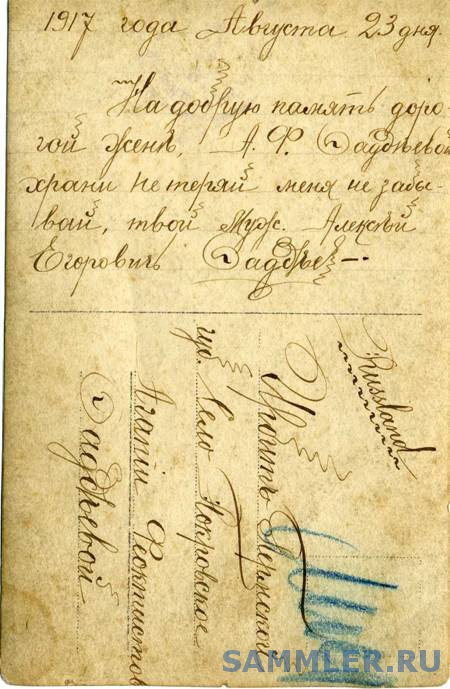 1917 года Августа 23 дня.
На добрую память доро-
гой Женѣ, А. Ф.
храни не теряй меня не забы-
вай, твой Муж. Алексѣй
Егоровичъ
Russland
Пермской
губ. Село Покровское
Агапiи Феоктистов
SAMMLER.RU